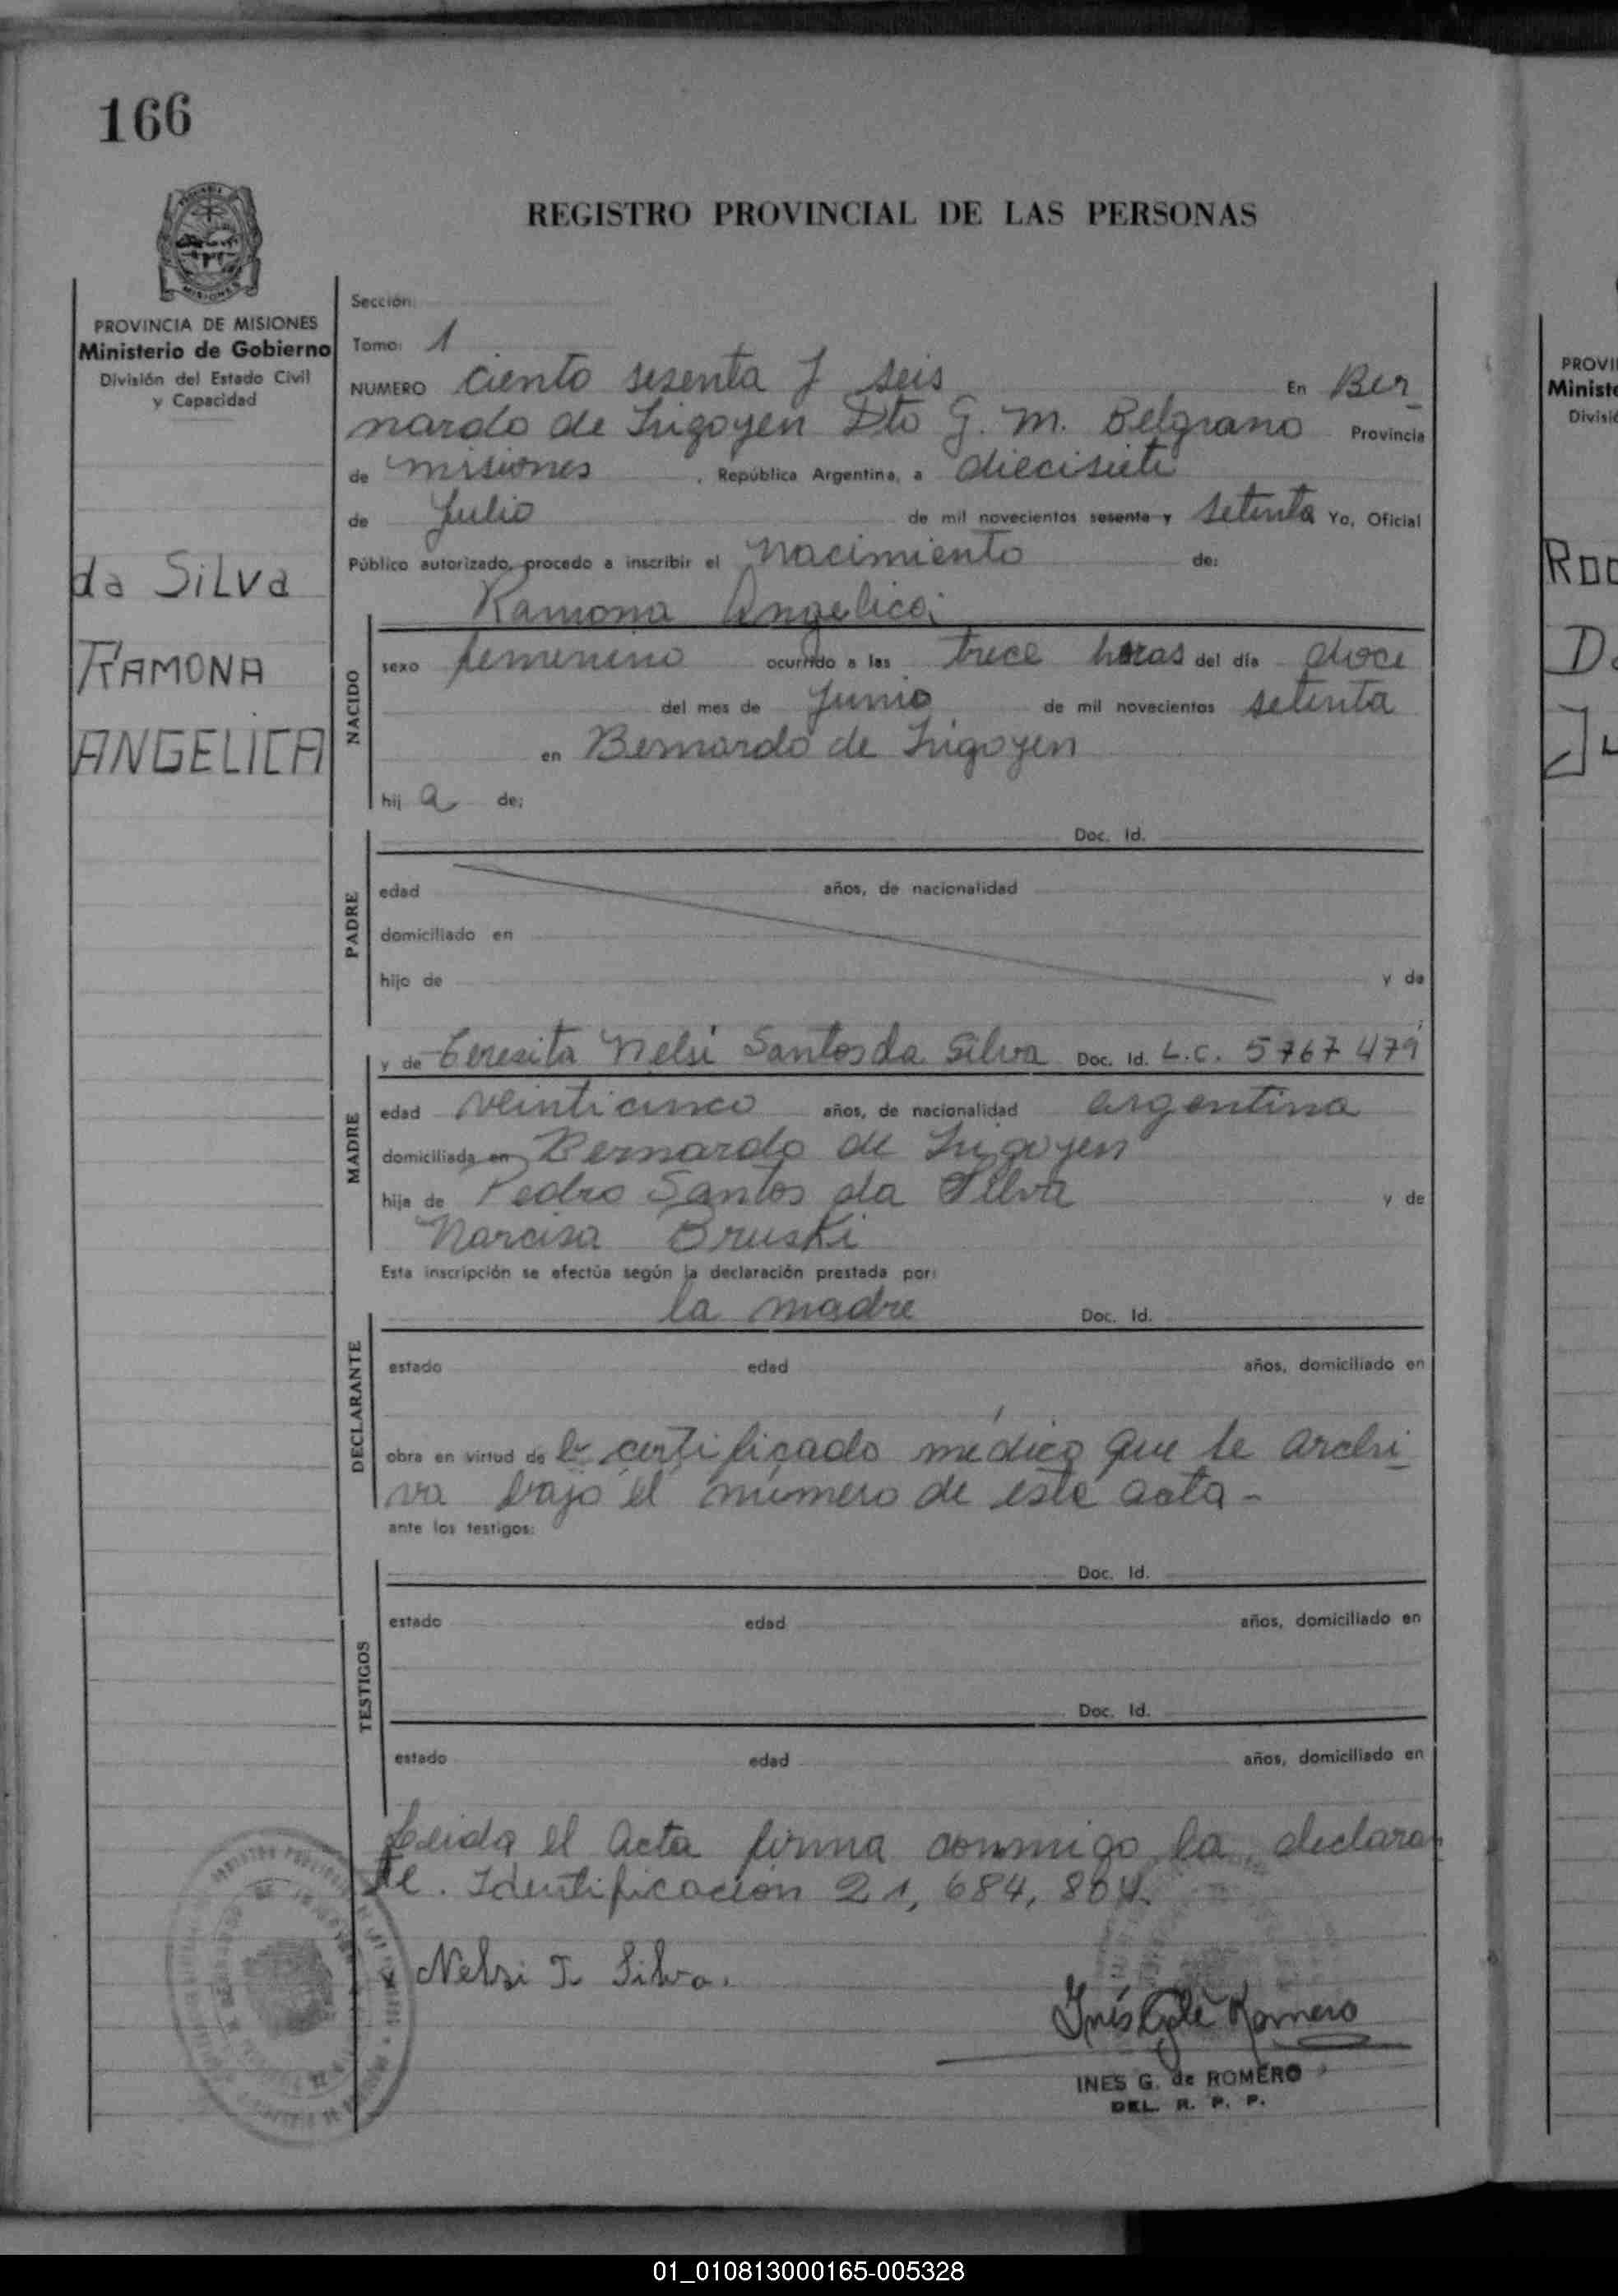 166
REGISTRO PROVINCIAL DE LAS PERSONAS
MISIONES
PROVINCIA DE MISIONES
Ministerio de Gobierno
División del Estado Civil
y Capacidad
da SILVa
RAMONA
ANGELICA
Sección:
Tomo: 1
NUMERO ciento sesenta y seis En Ber_
nardo de Irigoyen Dto G. M. Belgrano Provincia
de misiones, República Argentina, a diecisiete
de Julio de mil novecientos sesenta y setenta Yo, Oficial
Público autorizado, procedo a inscribir el nacimiento de:
Ramona Angelica
NACIDO
sexo femenino ocurrido a las trece horas del día doce
del mes de Junio de mil novecientos setenta
en Bernardo de Irigoyen
hij a de:
PADRE
Doc. Id.
edad años, de nacionalidad
domiciliado en
hijo de y de
MADRE
y de Teresita Nelsi Santos da Silva Doc. Id. L.C. 5767479
edad veinticinco años, de nacionalidad argentina
domiciliada en Bernardo de Irigoyen
hija de Pedro Santos da Silva y de
Narcisa Bruski
Esta inscripción se efectúa según la declaración prestada por:
DECLARANTE
la madre Doc. Id.
estado edad años, domiciliado en
obra en virtud de certificado médico que se archi_
va bajo el número de este acta-
ante los testigos:
TESTIGOS
Doc. Id.
estado edad años, domiciliado en
Doc. Id.
estado edad años, domiciliado en
Leida el Acta firma conmigo la declaran
te. Identificacion 21,684,804.
x Nelsi T. Silva.
Inés Romero
INES G. de ROMERO
DEL. R. P. P.
PROVI
Ministe
Divisió
ROD
Da
Ju
01_010813000165-005328